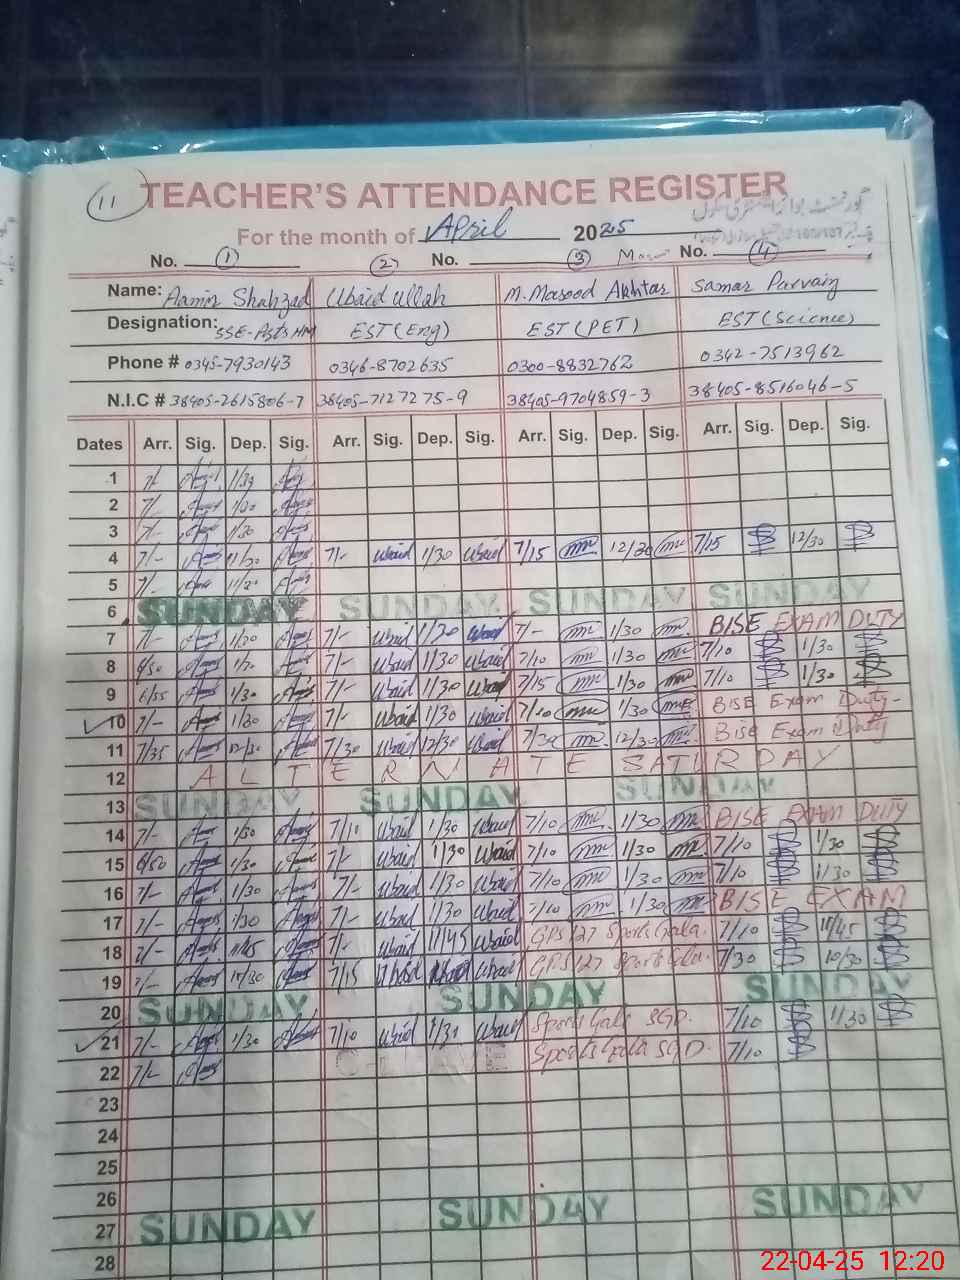 11
TEACHER'S ATTENDANCE REGISTER
For the month of April 2025
No. 1 2 No. 3 No. 4
Name: Aamir Shahzad Ubaid ullah M. Masood Akhtar Samar Parvaiz
Designation: SSE- HM EST (Eng) EST (PET) EST (Science)
Phone # 0345-7930143 0346-8702635 0300-8832762 0342-7513962
N.I.C # 38405-2615806-7 38405-7127275-9 38405-9704859-3 38405-8516046-5
Dates Arr. Sig. Dep. Sig. Arr. Sig. Dep. Sig. Arr. Sig. Dep. Sig. Arr. Sig. Dep. Sig.
1 7/- 1/30
2 7/- 1/30
3 7/- 1/30
4 7/- 11/30 7/- Ubaid 1/30 Ubaid 7/15 12/30 7/15 12/30
5 7/-
6 SUNDAY SUNDAY SUNDAY SUNDAY
7 7/- 1/30 7/- Ubaid 1/30 Ubaid 7/- 1/30 BISE EXAM DUTY
8 6/50 7/- Ubaid 1/30 Ubaid 7/10 1/30 7/10 1/30
9 6/55 1/30 7/- Ubaid 1/30 Ubaid 7/15 1/30 7/10 1/30
10 7/- 1/30 7/- Ubaid 1/30 Ubaid 7/10 1/30 BISE Exam Duty-
11 7/35 12/30 7/30 Ubaid 12/30 Ubaid 7/30 12/30 Bise Exam Duty
12 ALTERNATE SATURDAY
13 SUNDAY SUNDAY SUNDAY
14 7/- 1/30 7/10 Ubaid 1/30 Ubaid 7/10 1/30 BISE EXAM DUTY
15 6/50 1/30 7/- Ubaid 1/30 Ubaid 7/10 1/30 7/10 1/30
16 7/- 1/30 7/- Ubaid 1/30 Ubaid 7/10 1/30 7/10 1/30
17 7/- 1/30 7/- Ubaid 1/30 Ubaid 7/10 1/30 BISE EXAM
18 7/- 11/45 7/- Ubaid 11/45 Ubaid GPS 127 Sports Gala. 7/10 11/45
19 7/- 10/30 7/15 Ubaid GPS 127 Sports Gala. 7/30 10/30
20 SUNDAY SUNDAY SUNDAY
21 7/- 1/30 7/10 Ubaid 1/30 Ubaid Sports Gala SGD. 7/10 1/30
22 7/- C-LEAVE Sports Gala SGD. 7/10
23
24
25
26
27 SUNDAY SUNDAY SUNDAY
28
22-04-25 12:20